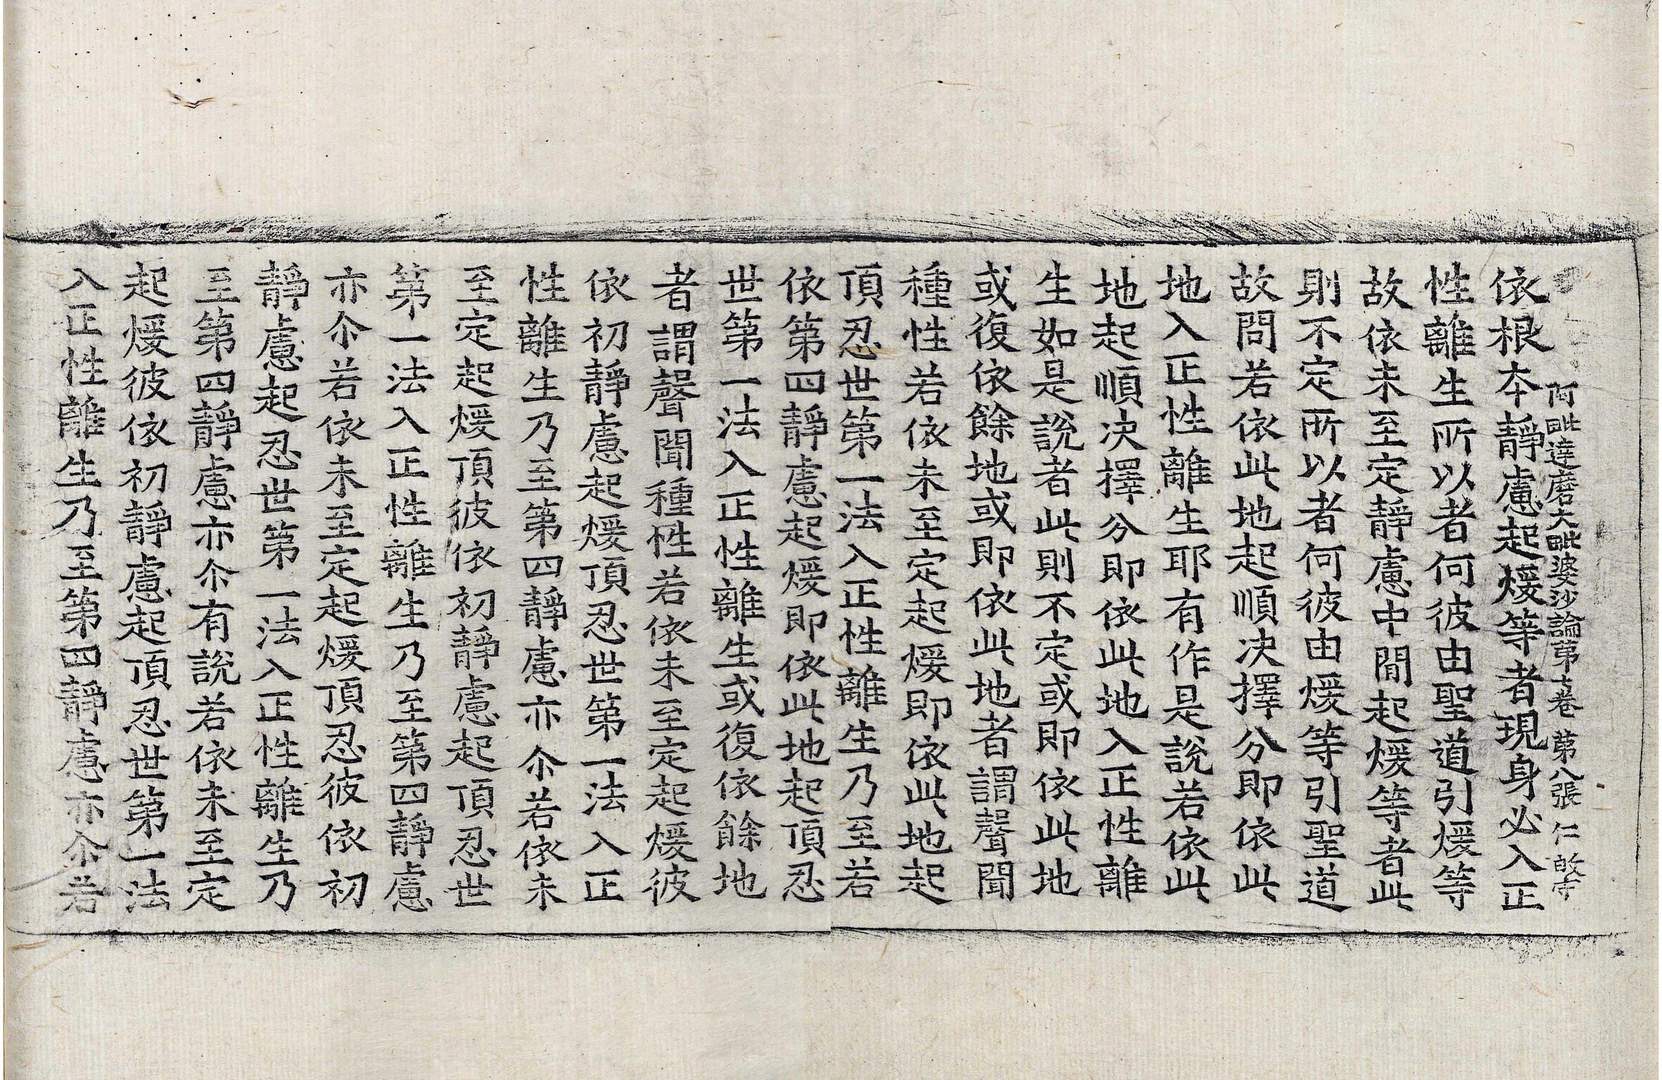 阿毗達磨大毗婆沙論第七卷 第八張 仁
依根本靜慮起煖等者現身必入正
性離生所以者何彼由聖道引煖等
故依未至定靜慮中閒起煖等者此
則不定所以者何彼由煖等引聖道
故問若依此地起順决擇分即依此
地入正性離生耶有作是說若依此
地起順决擇分即依此地入正性離
生如是說者此則不定或即依此地
或復依餘地或即依此地者謂聲聞
種性若依未至定起煖即依此地起
頂忍世第一法入正性離生乃至若
依第四靜慮起煖即依此地起頂忍
世第一法入正性離生或復依餘地
者謂聲聞種性若依未至定起煖彼
依初靜慮起煖頂忍世第一法入正
性離生乃至第四靜慮亦尒若依未
至定起煖頂彼依初靜慮起頂忍世
第一法入正性離生乃至第四靜慮
亦尒若依未至定起煖頂忍彼依初
靜慮起忍世第一法入正性離生乃
至第四靜慮亦尒有說若依未至定
起煖彼依初靜慮起頂忍世第一法
入正性離生乃至第四靜慮亦尒若